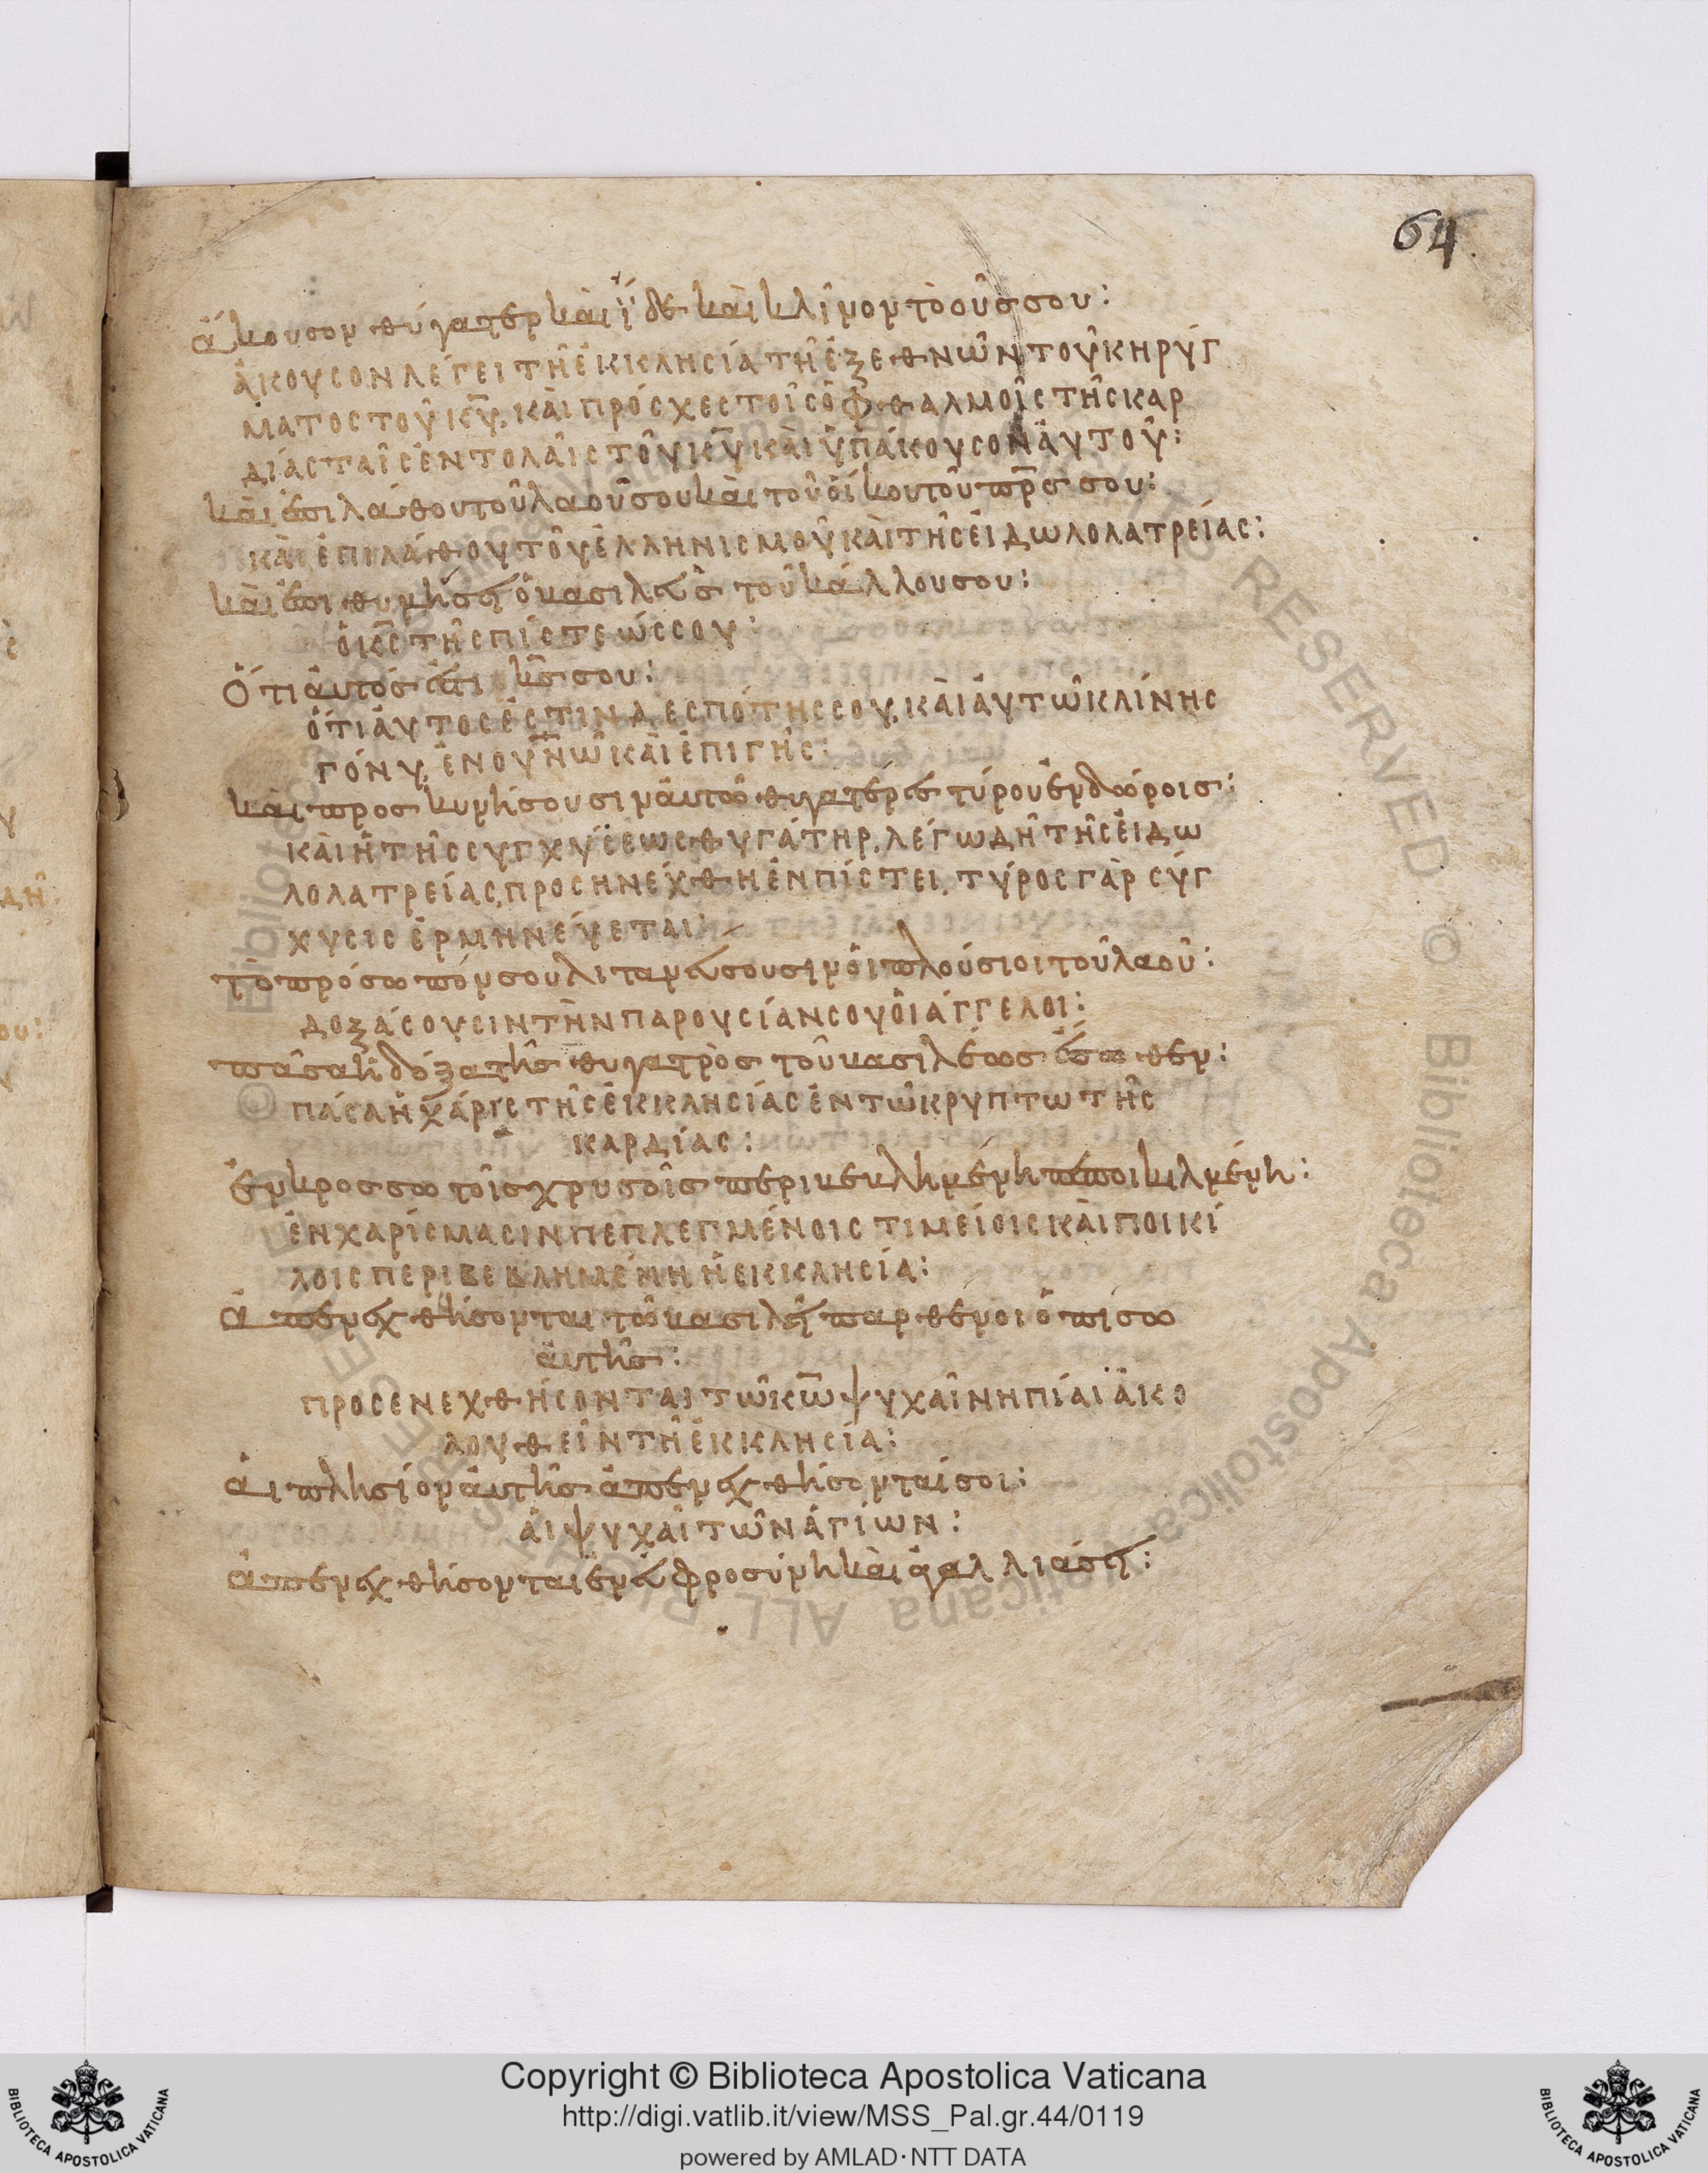 64
ἄκουσον θύγατερ καὶ ἴδε καὶ κλῖνον τὸ οὖς σου:
ἄκουσον λέγει τῇ ἐκκλησίᾳ τῇ ἐξ ἐθνῶν τοῦ κηρύγ
ματος τοῦ κ̅υ̅, καὶ πρόσχες τοῖς ὀφθαλμοῖς τῆς καρ
δίας ταῖς ἐντολαῖς τοῦ κ̅υ̅ καὶ ὑπάκουσον αὐτοῦ:
καὶ ἐπιλάθου τοῦ λαοῦ σου καὶ τοῦ οἴκου τοῦ π̅ρ̅ς σου:
καὶ ἐπιλάθου τοῦ ἑλληνισμοῦ καὶ τῆς εἰδωλολατρείας:
καὶ ἐπιθυμήσει ὁ βασιλεὺς τοῦ κάλλους σου:
ὁ κ̅ς̅ τῆς πίστεώς σου:
Ὅτι αὐτός ἐστι κ̅ς̅ σου:
ὅτι αὐτός ἐστιν δεσπότης σου, καὶ αὐτῷ κλίνης
γόνυ, ἐν οὐ̅ν̅ῷ καὶ ἐπὶ γῆς:
καὶ προσκυνήσουσιν αὐτῷ θυγατέρες τύρου ἐν δώροις:
καὶ ἡ τῆς συγχύσεως θυγάτηρ, λέγω δὴ τῆς εἰδω
λολατρείας, προσηνέχθη ἐν πίστει, τύρος γὰρ σύγ
χυσις ἑρμηνεύεται:
τὸ πρόσωπόν σου λιτανεύσουσιν οἱ πλούσιοι τοῦ λαοῦ:
δοξάσουσιν τὴν παρουσίαν σου οἱ ἄγγελοι:
πᾶσα ἡ δόξα τῆς θυγατρὸς τοῦ βασιλέως ἔσωθεν:
πᾶσα ἡ χάρις τῆς ἐκκλησίας ἐν τῷ κρυπτῷ τῆς
καρδίας:
ἐν κροσσωτοῖς χρυσοῖς περιβεβλημένη πεποικιλμένη:
ἐν χαρίσμασιν πεπλεγμένοις τιμείοις καὶ ποικί
λοις περιβεβλημένη ἡ ἐκκλησία:
ἀπενεχθήσονται τῷ βασιλεῖ παρθένοι ὀπίσω
αὐτῆς:
προσενεχθήσονται τῷ κ̅ω̅ ψυχαὶ νήπιαι ἀκο
λουθεῖν τῇ ἐκκλησίᾳ:
αἱ πλησίον αὐτῆς ἀπενεχθήσονταί σοι:
αἱ ψυχαὶ τῶν ἁγίων:
ἀπενεχθήσονται ἐν εὐφροσύνῃ καὶ ἀγαλλιάσει:
Copyright © Biblioteca Apostolica Vaticana
http://digi.vatlib.it/view/MSS_Pal.gr.44/0119
powered by AMLAD·NTT DATA
BIBLIOTECA APOSTOLICA VATICANA
BIBLIOTECA APOSTOLICA VATICANA